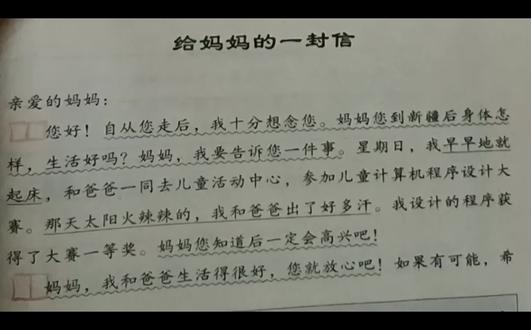 给妈妈的一封信
亲爱的妈妈：
您好！自从您走后，我十分想念您。妈妈您到新疆后身体怎
样，生活好吗？妈妈，我要告诉您一件事。星期日，我早早地就
起床，和爸爸一同去儿童活动中心，参加儿童计算机程序设计大
赛。那天太阳火辣辣的，我和爸爸出了好多汗。我设计的程序获
得了大赛一等奖。妈妈您知道后一定会高兴吧！
妈妈，我和爸爸生活得很好，您就放心吧！如果有可能，希